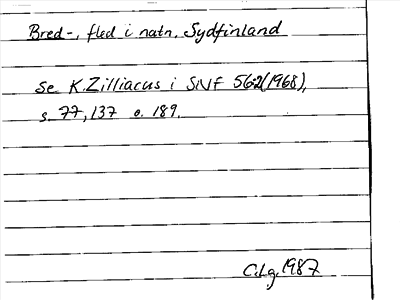 Bred-, fled i natn. Sydfinland
Se K. Zilliacus i SNF 56:2 (1968),
s. 77, 137 o. 189.
C.Lg. 1987